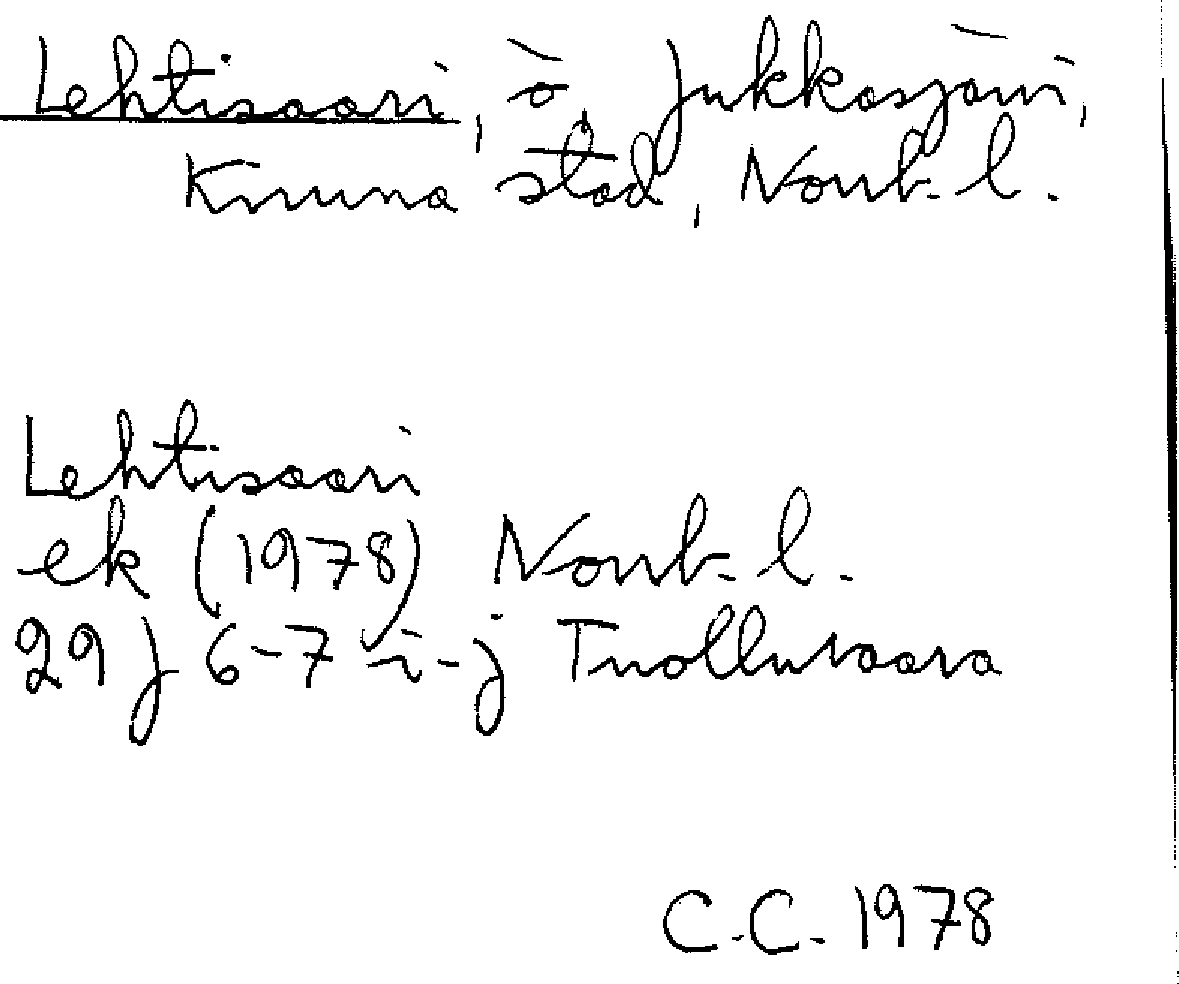 Lehtisaari, ö, Jukkasjärvi,
Kiruna stad, Norrb. l.
Lehtisaari
ek (1978) Norrb. l.
29 J 6-7 i-j Tuolluvaara
C.C. 1978